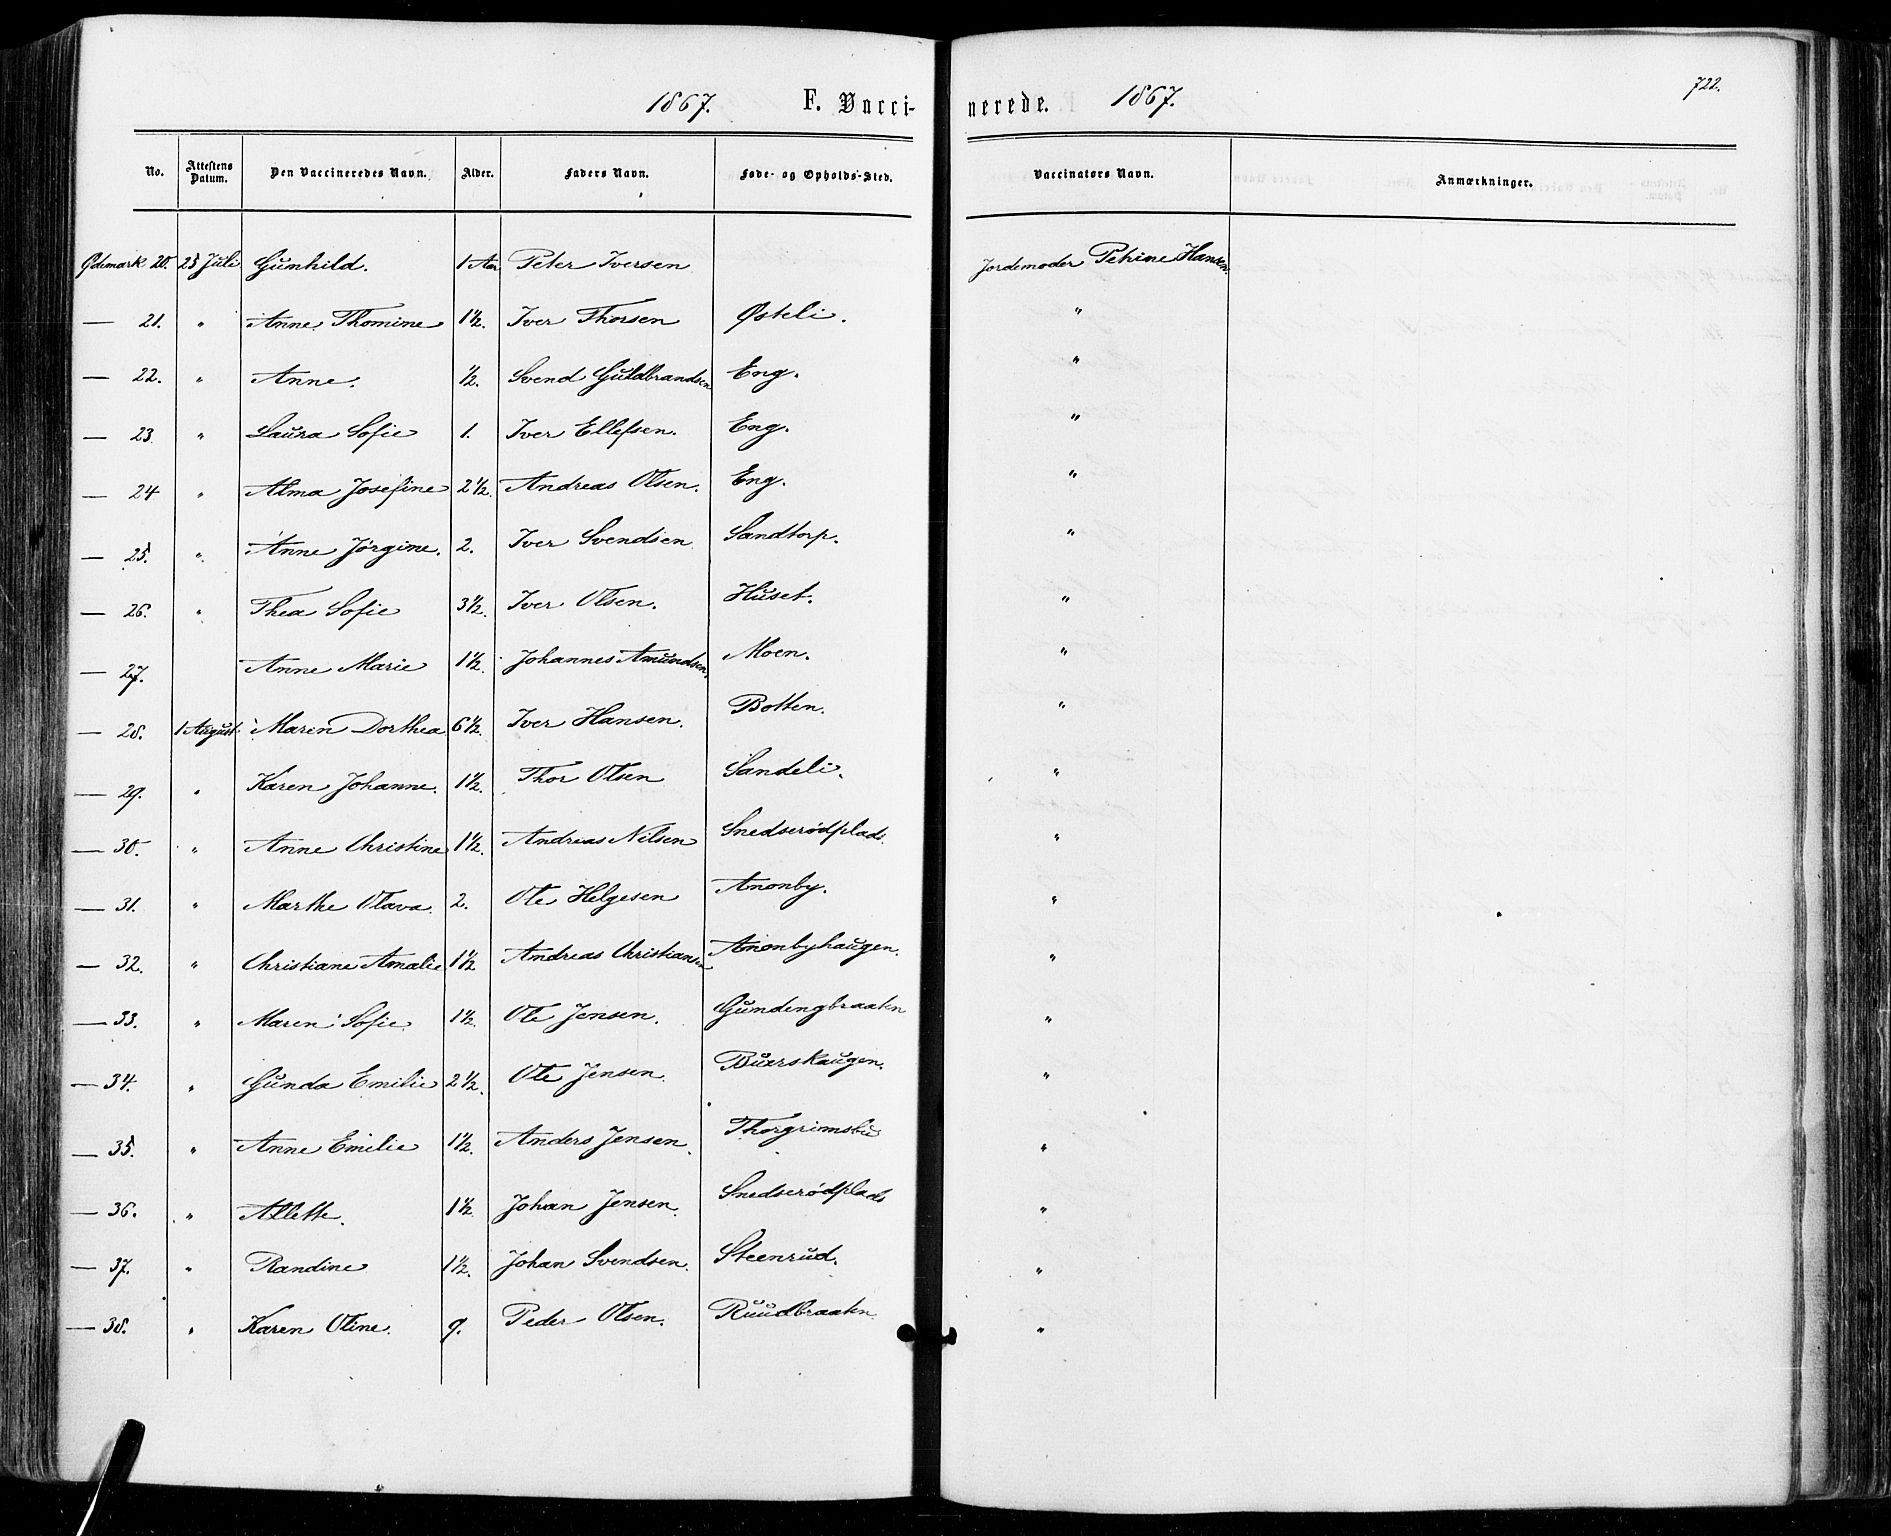 1867. F. Vaccinerede. 1867. 722.
No. Attestens Datum. Den Vaccineredes Navn. Alder. Faders Navn. Føde- og Opholds-Sted. Vaccinators Navn. Anmærkninger.
Ødemark 20. 25 Juli Gunhild. 1 Aar Peter Iversen Jordemoder Petrine Hansen
— 21. " Anne Thomine 1½. Iver Thorsen Østeli. "
— 22. " Anne. ½. Svend Guldbrandsen Eng. "
— 23. " Laura Sofie 1. Iver Ellefsen. Eng. "
— 24 " Alma Josefine 2½. Andreas Olsen. Eng. "
— 25. " Anne Jørgine. 2. Iver Svendsen Sandtorp. "
— 26. " Thea Sofie 3½. Iver Olsen. Huset. "
— 27. Anne Marie 1½. Johannes Amundsen. Moen. "
— 28. 1 August. Maren Dorthea 6½. Iver Hansen. Botten. "
— 29. " Karen Johanne. 1½. Thor Olsen Sandeli. "
— 30. " Anne Christine 1½. Andreas Nilsen Snedserødplads. "
— 31. " Marthe Olava. 2. Ole Helgesen Anonby. "
— 32. " Christiane Amalie 1½ Andreas Christiansen Anonbyhaugen. "
— 33. " Maren Sofie 1½. Ole Jensen. Gundengbraaten "
— 34. " Gunda Emilie 2½. Ole Jensen. Buerskaugen. "
— 35. " Anne Emilie 1½. Anders Jensen. Thorgrimsbu "
— 36. " Allette. 1½. Johan Jensen. Snedserødplads "
— 37. " Randine 1½. Johan Svendsen. Steenrud. "
— 38. " Karen Oline. 9. Peder Olsen. Ruudbraaten "